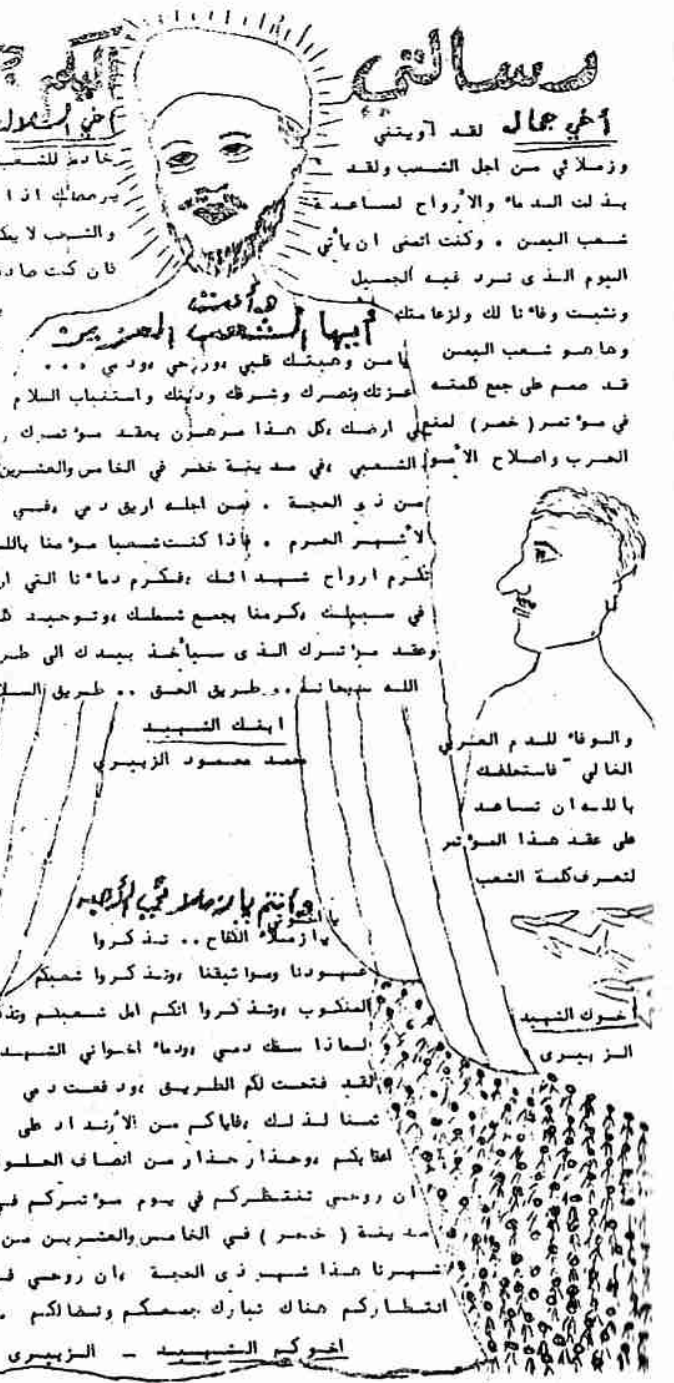 رسالتي إليكم
أخي جمال لقد آويتني
وزملائي من اجل الشعب ولقد
بذلت الدماء والأرواح لمساعدة
شعب اليمن . وكنت اتمنى ان يأتي
اليوم الذي نرد فيه الجميل
ونثبت وفائنا لك ولزعامتك
وها هو شعب اليمن
قد صمم على جمع كلمته
في مؤتمر ( خمر ) لمنع
الحرب واصلاح الأمور
والوفاء للدم العربي
الغالي - فاستحلفك
بالله ان تساعد
على عقد هذا المؤتمر
لتعرف كلمة الشعب
أخوك الشهيد
الزبيري
أخي السلال
خادم للشعب
يرحمك اذا
والشعب لا
فان كنت
وأنت
أيها الشعب العزيز
يا من وهبتك قلبي ،وروحي ،ودمي ...
عزتك ونصرك وشرفك ودينك واستتباب السلام
على ارضك ،كل هذا مرهون بعقد مؤتمرك
الشعبي ،في مدينة خمر في الخامس والعشرين
من ذو الحجة . فمن اجله اريق دمي ،وفي
الأشهر الحرم . فاذا كنت شعبا مؤمنا
تكرم ارواح شهدائك ،فكرم دمائنا التي
في سبيلك ،كرمنا بجمع شملك ،وتوحيد
وعقد مؤتمرك الذي سيأخذ بيدك الى
الله سبحانه .. طريق الحق .. طريق
ابنك الشهيد
محمد محمود الزبيري
وأنتم يا زملائي الأحبه
يا اخوتي
يا زملاء الكفاح .. تذكروا
عهودنا ومواثيقنا ،وتذكروا شعبكم
المنكوب ،وتذكروا انكم امل شعبكم
لماذا سفك دمي ،ودماء اخواني
لقد فتحت لكم الطريق ،ودفعت دمي
ثمنا لذلك ،فاياكم من الارتداد على
اعقابكم ،وحذار حذار من انصاف
ان روحي تنتظركم في يوم مؤتمركم
مدينة ( خمر ) في الخامس والعشرين من
شهرنا هذا شهر ذي الحجة ،ان روحي
انتظاركم هناك تبارك جمعكم ونضالكم .
اخوكم الشهيد - الزبيري